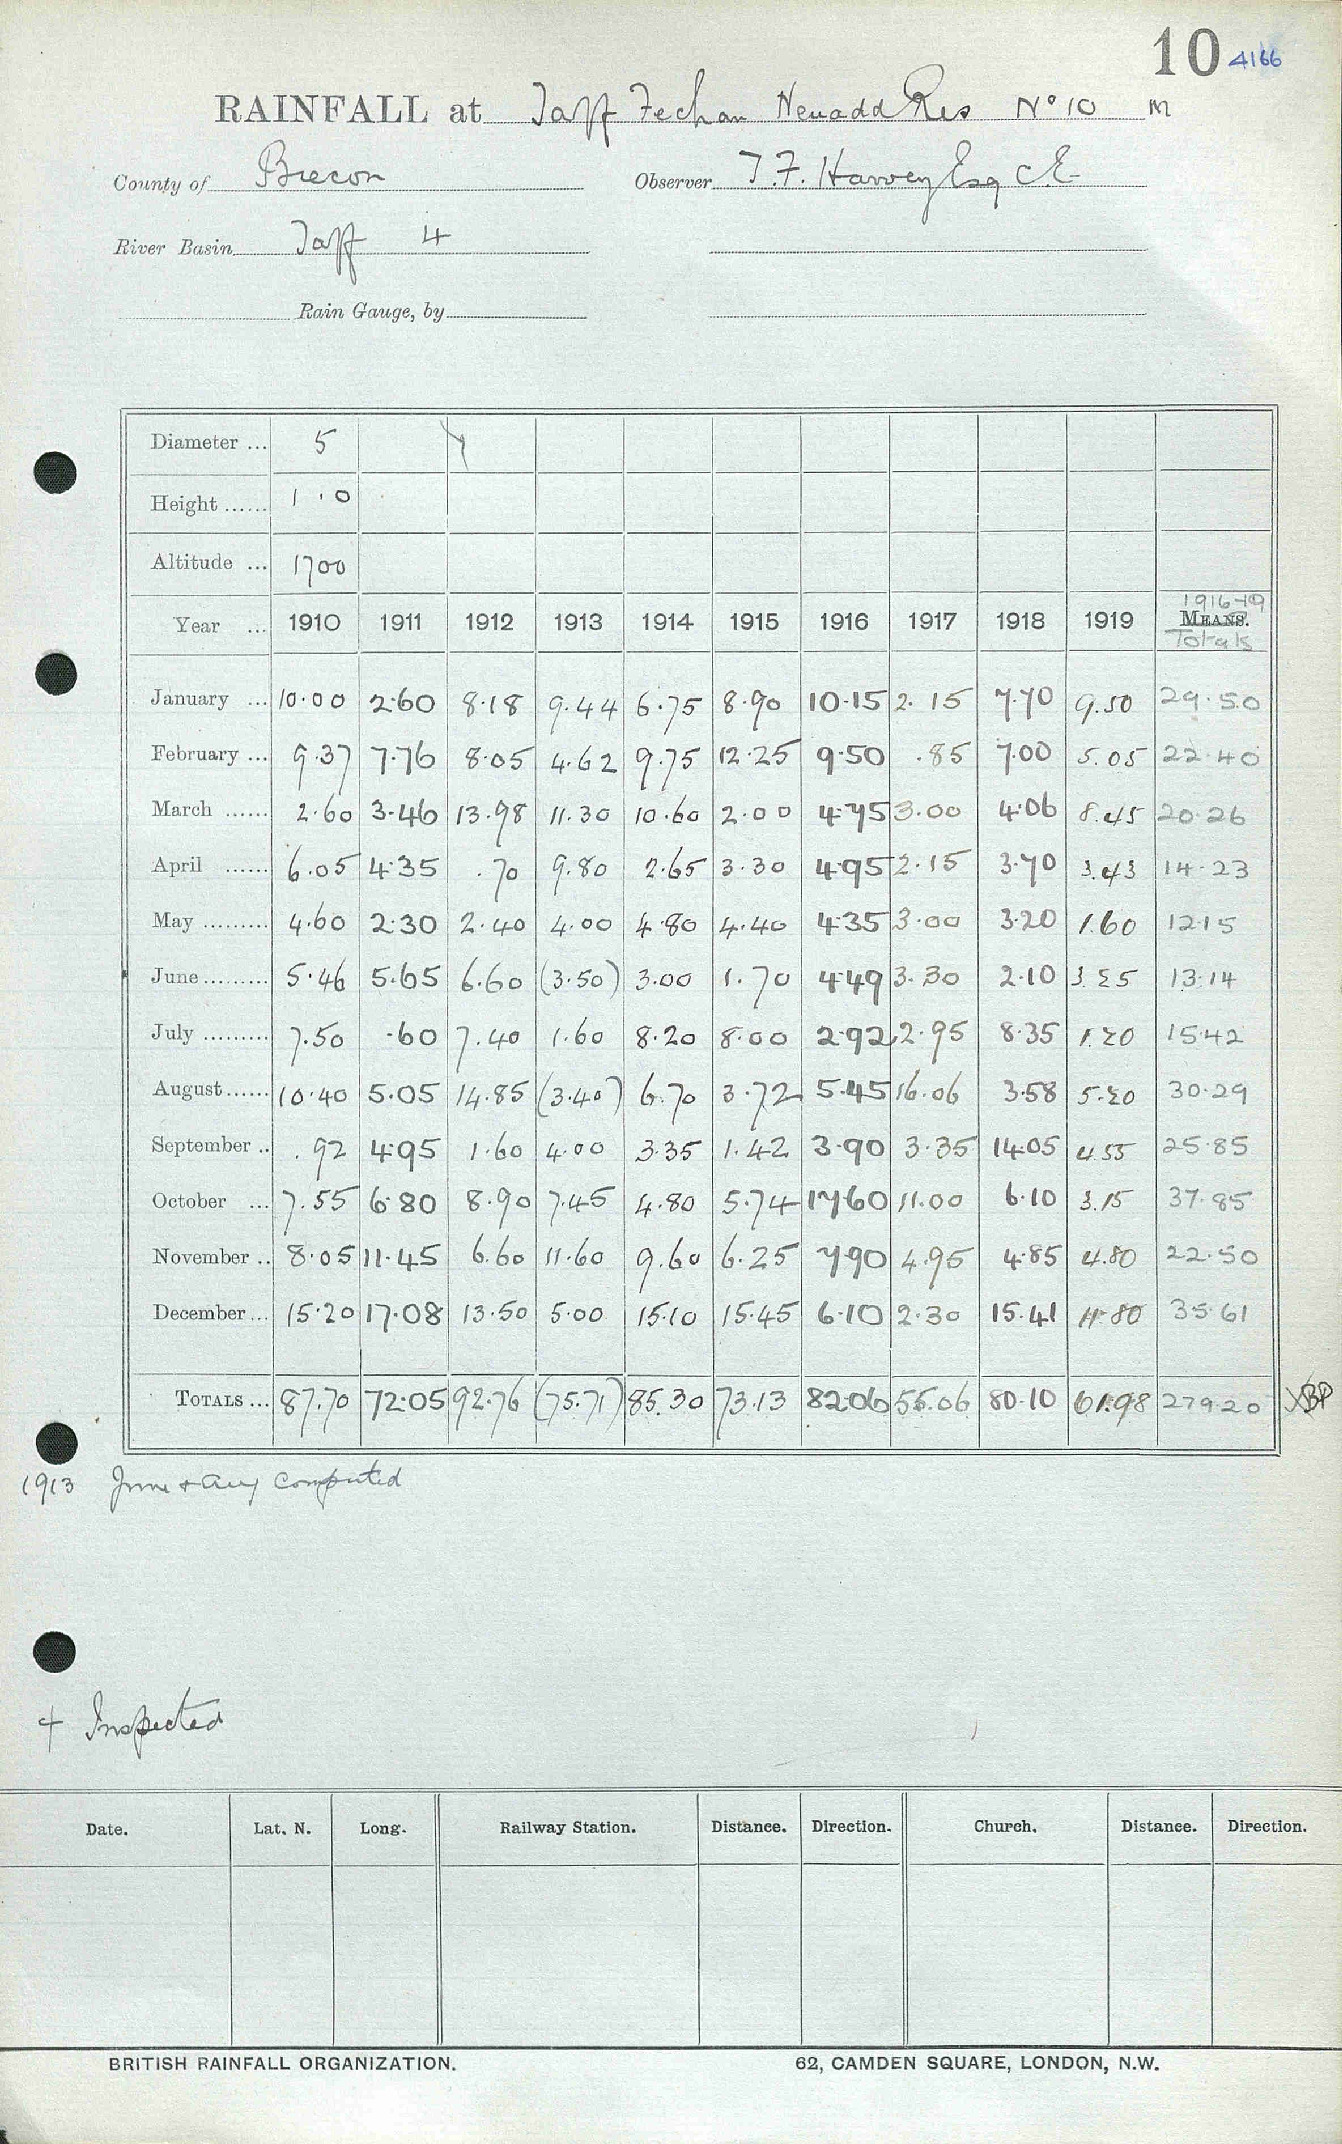 10 4166
RAINFALL at Taff Fechan Neuadd Res No 10 m
County of Brecon Observer T. F. Harvey Esq C.E.
River Basin Taff 4
Rain Gauge, by
Diameter ... 5
Height ...... 1 . 0
Altitude ... 1700
Year ... 1910 1911 1912 1913 1914 1915 1916 1917 1918 1919 1916-19 MEANS. Totals
January ... 10.00 2.60 8.18 9.44 6.75 8.90 10.15 2.15 7.70 9.50 29.50
February ... 9.37 7.76 8.05 4.62 9.75 12.25 9.50 .85 7.00 5.05 22.40
March ...... 2.60 3.46 13.98 11.30 10.60 2.00 4.75 3.00 4.06 8.45 20.26
April ...... 6.05 4.35 .70 9.80 2.65 3.30 4.95 2.15 3.70 3.43 14.23
May ......... 4.60 2.30 2.40 4.00 4.80 4.40 4.35 3.00 3.20 1.60 12.15
June ......... 5.46 5.65 6.60 (3.50) 3.00 1.70 4.49 3.30 2.10 3.25 13.14
July ......... 7.50 .60 7.40 1.60 8.20 8.00 2.92 2.95 8.35 1.20 15.42
August ...... 10.40 5.05 14.85 (3.40) 6.70 3.72 5.45 16.06 3.58 5.20 30.29
September .. .92 4.95 1.60 4.00 3.35 1.42 3.90 3.35 14.05 4.55 25.85
October ... 7.55 6.80 8.90 7.45 4.80 5.74 17.60 11.00 6.10 3.15 37.85
November .. 8.05 11.45 6.60 11.60 9.60 6.25 7.90 4.95 4.85 4.80 22.50
December ... 15.20 17.08 13.50 5.00 15.10 15.45 6.10 2.30 15.41 11.80 35.61
TOTALS ... 87.70 72.05 92.76 (75.71) 85.30 73.13 82.06 55.06 80.10 61.98 279.20
1913 June + Aug computed
+ Inspected
Date. Lat. N. Long. Railway Station. Distance. Direction. Church. Distance. Direction.
BRITISH RAINFALL ORGANIZATION. 62, CAMDEN SQUARE, LONDON, N.W.